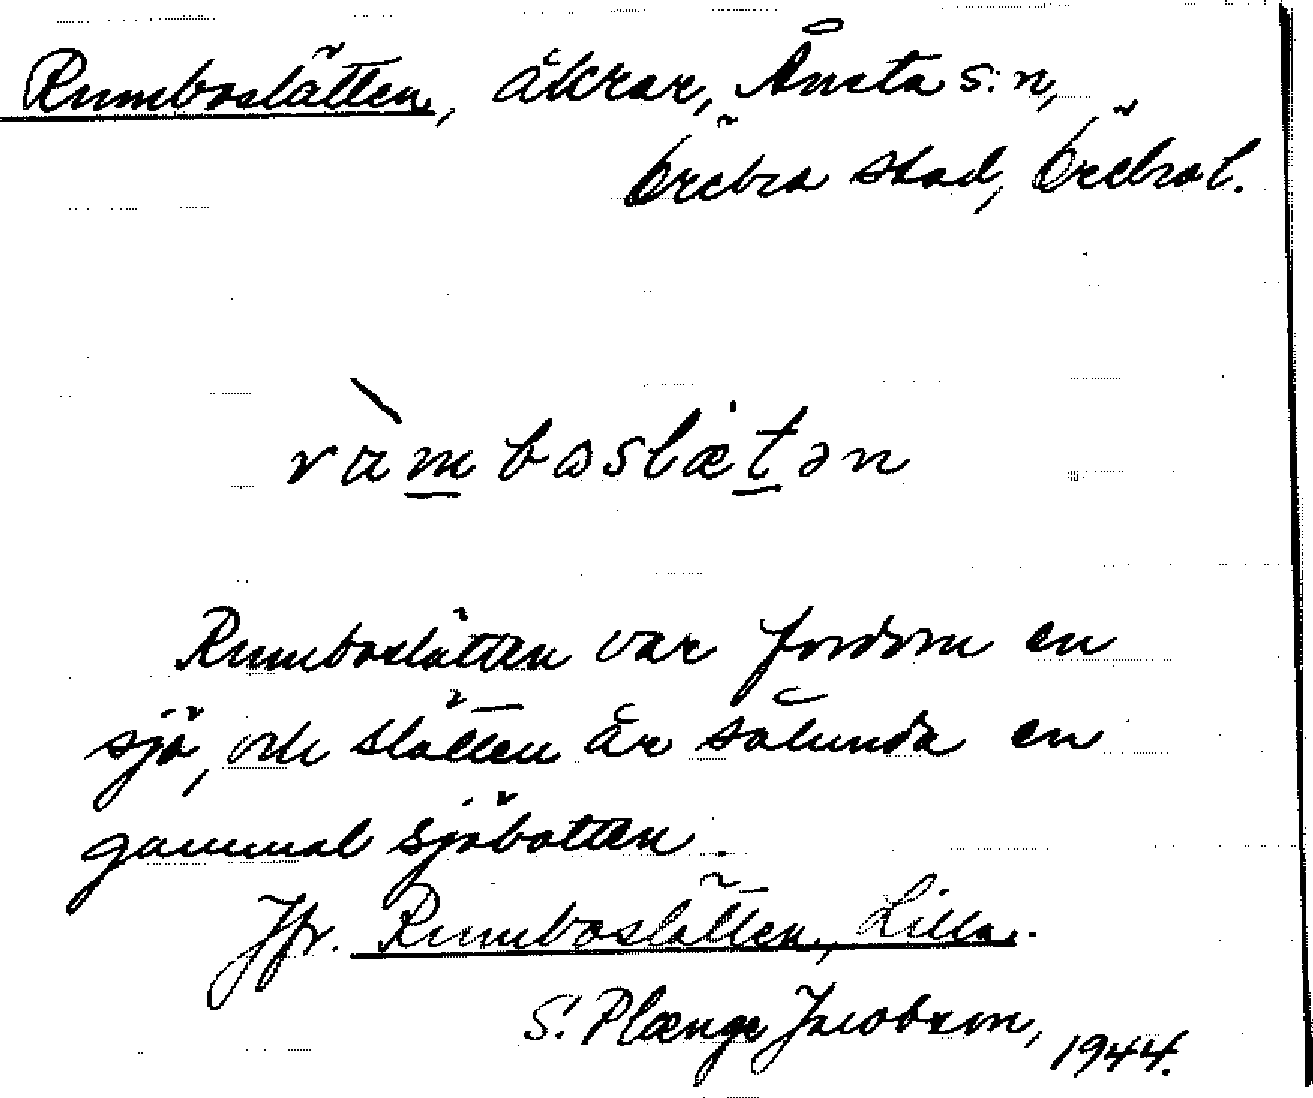 Rumboslätten, åkrar, Ånsta s:n,
Örebro stad, Örebro l.
ràmboslætən
Rumboslätten var fordom en
sjö, och slätten är sålunda en
gammal sjöbotten.
Jfr. Rumboslätten, Lilla.
S. Plænge Jacobson,
1944.